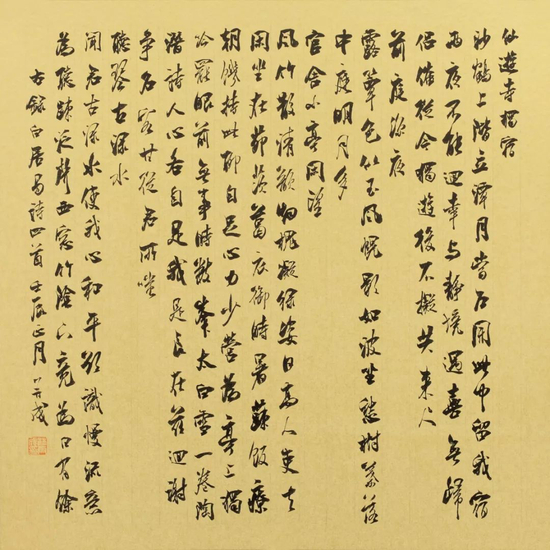 仙遊寺獨宿
沙鶴上階立潭月當戶開此中留我宿
兩夜不能迴幸與靜境遇喜無歸
侶催從今獨遊後不擬共來人
前庭涼夜
露簟色似玉風幌影如波坐愁樹葉落
中庭明月多
官舍小亭閑望
風竹散清韻煙槐凝綠姿日高人吏去
閑坐在茆茨葛衣御時暑蔬飯療
朝饑持此聊自足心力少營為亭上獨
吟罷眼前無事時數峯太白雪一卷陶
潛詩人心各自是我是良在茲迴謝
爭名客甘從君所嗤
聽琴古淥水
聞君古淥水使我心和平欲識慢流意
為聽疎泛聲西窓竹陰下竟日有餘
右錄白居易詩四首壬辰正月